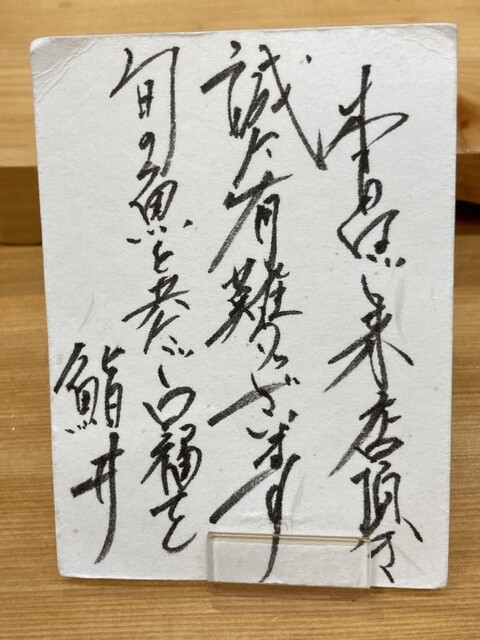 本日はご来店頂き
誠に有難うございます
旬の魚と共に口福を
鮨井